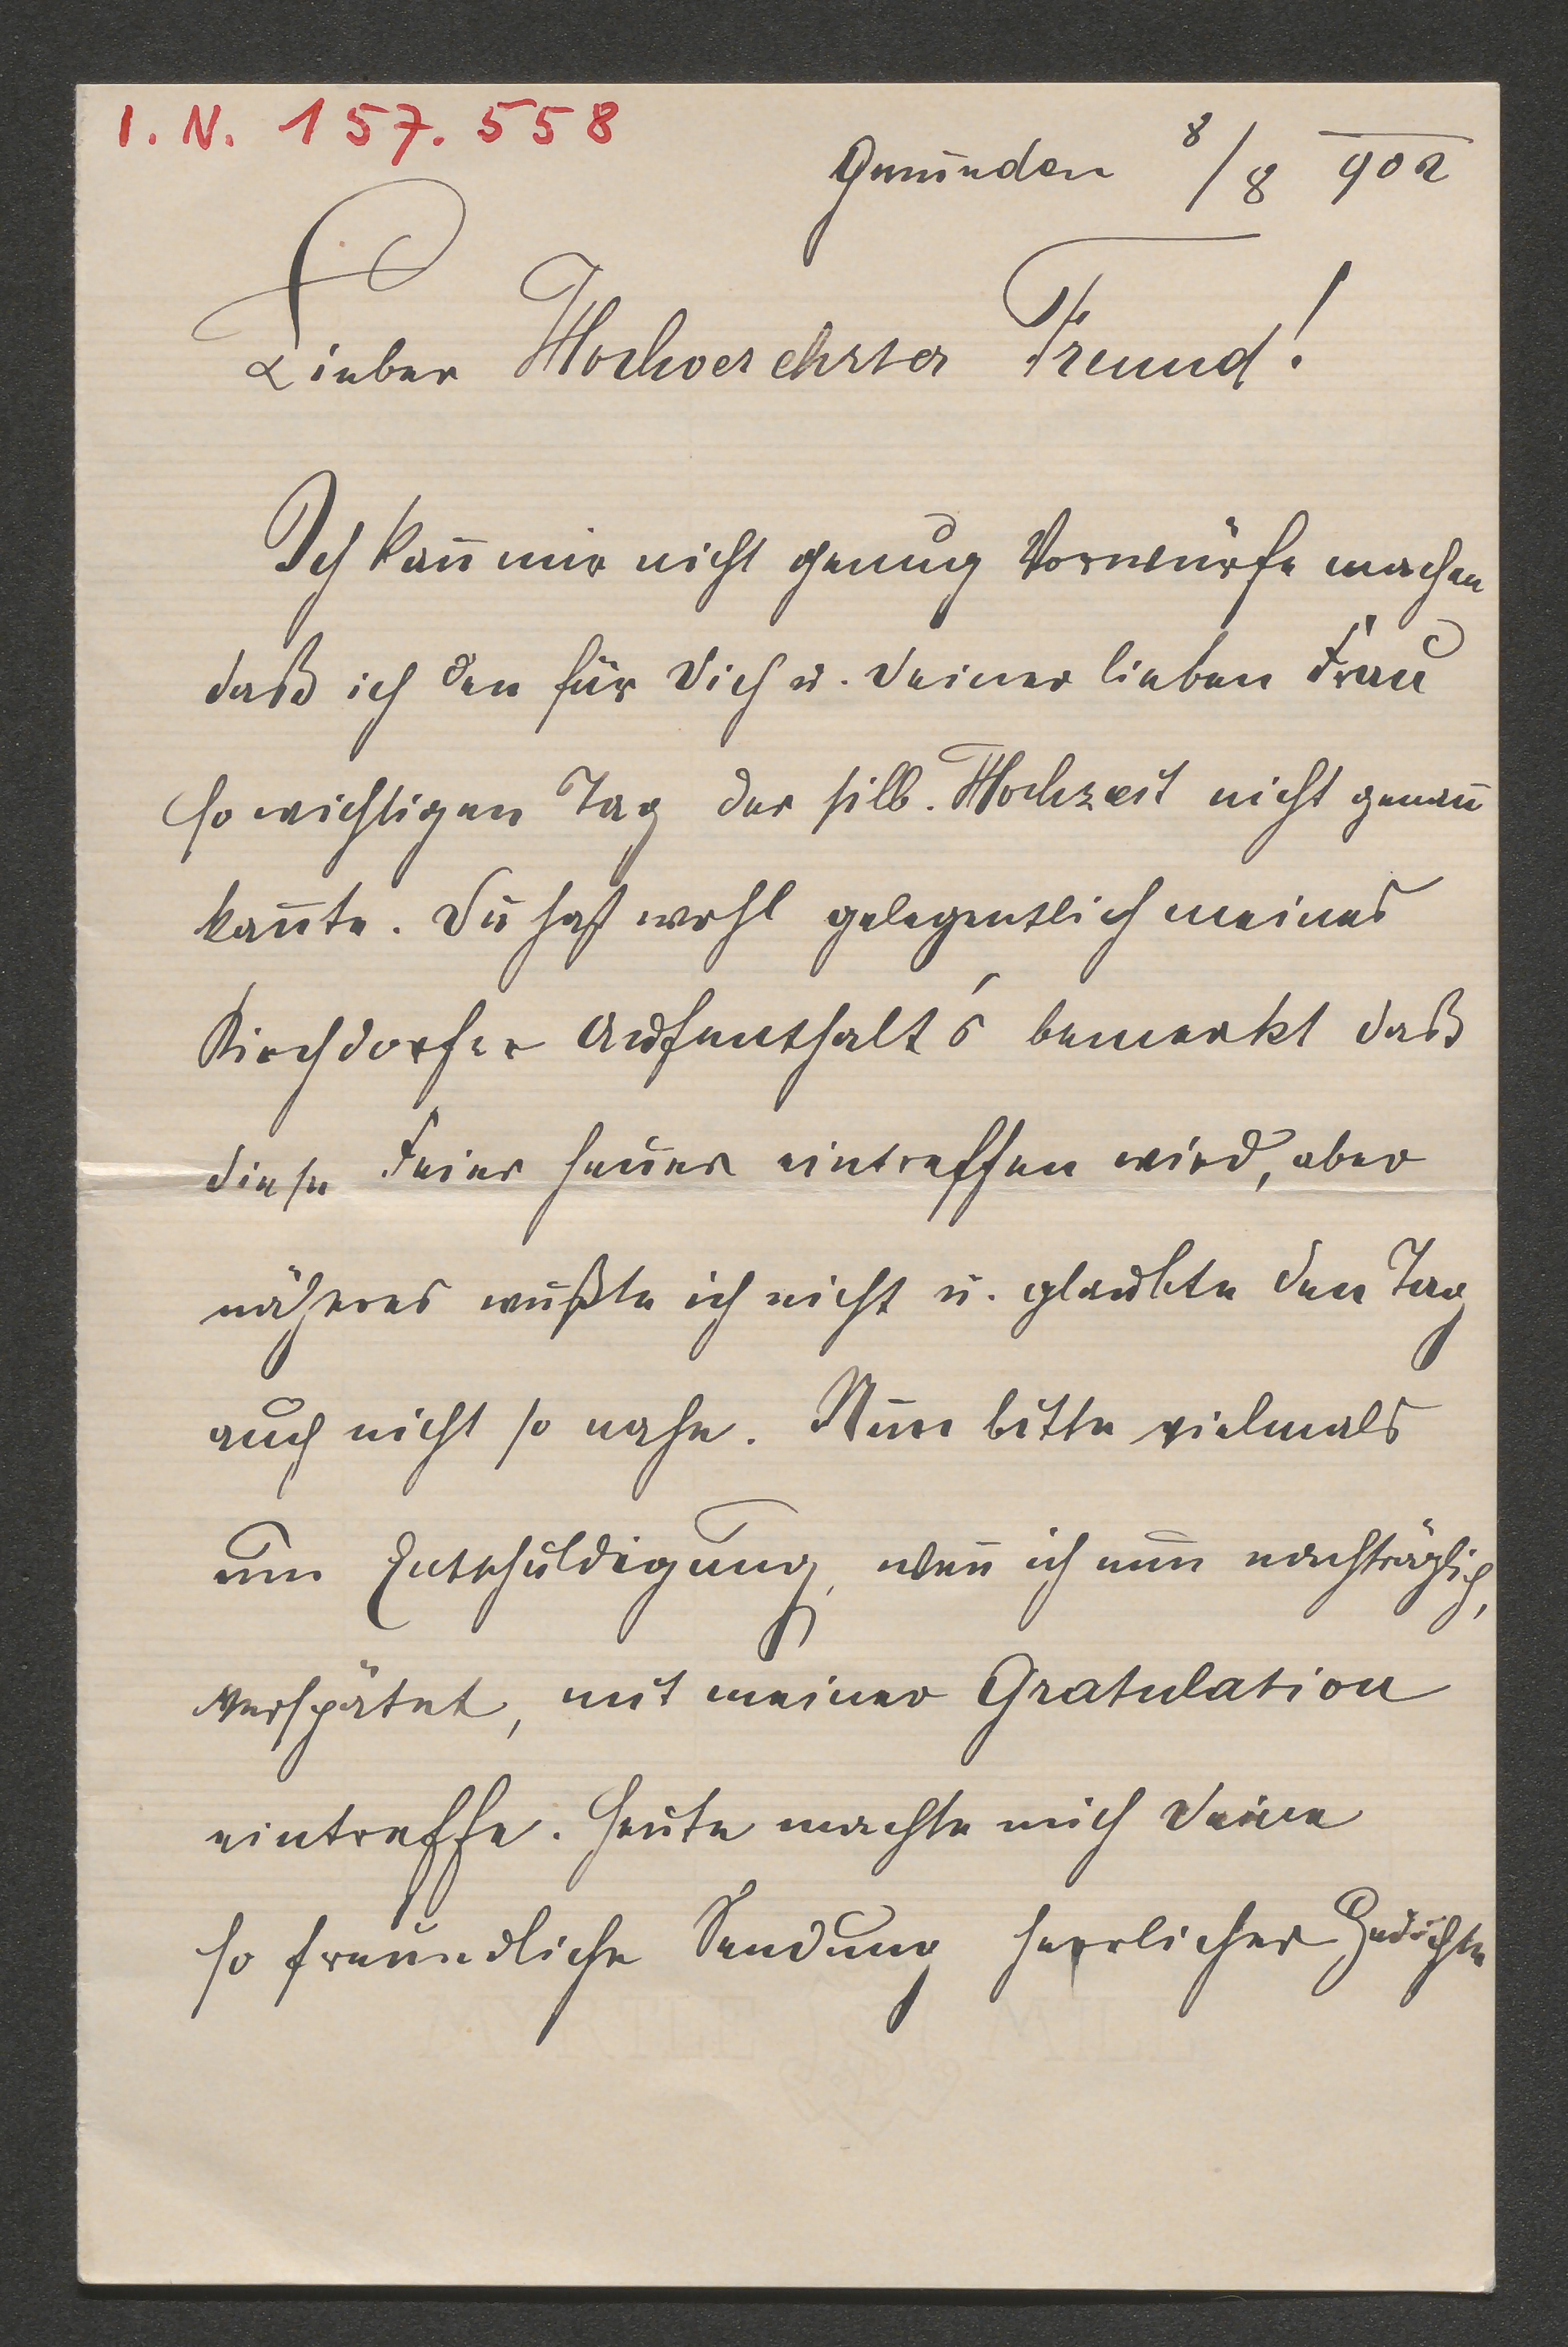 I. N. 157.558
Gmunden 8/8 902
Lieber Hochverehrter Freund!
Ich kan̅ mir nicht genug Vorwürfe machen
daß ich den für Dich u. Deiner lieben Frau
so wichtigen Tag der silb. Hochzeit nicht genau
kan̅te. Du hast wohl gelegentlich meines
Kirchdorfer Aufenthalt's bemerkt daß
diese Feier heuer eintreffen wird, aber
näheres wußte ich nicht u. glaubte den Tag
auch nicht so nahe. Nun bitte vielmals
um Entschuldigung, wen̅ ich nun nachträglich,
verspätet, mit meiner Gratulation
eintreffe. Heute machte mich Deine
so freundliche Sendung herrlicher Gedichte